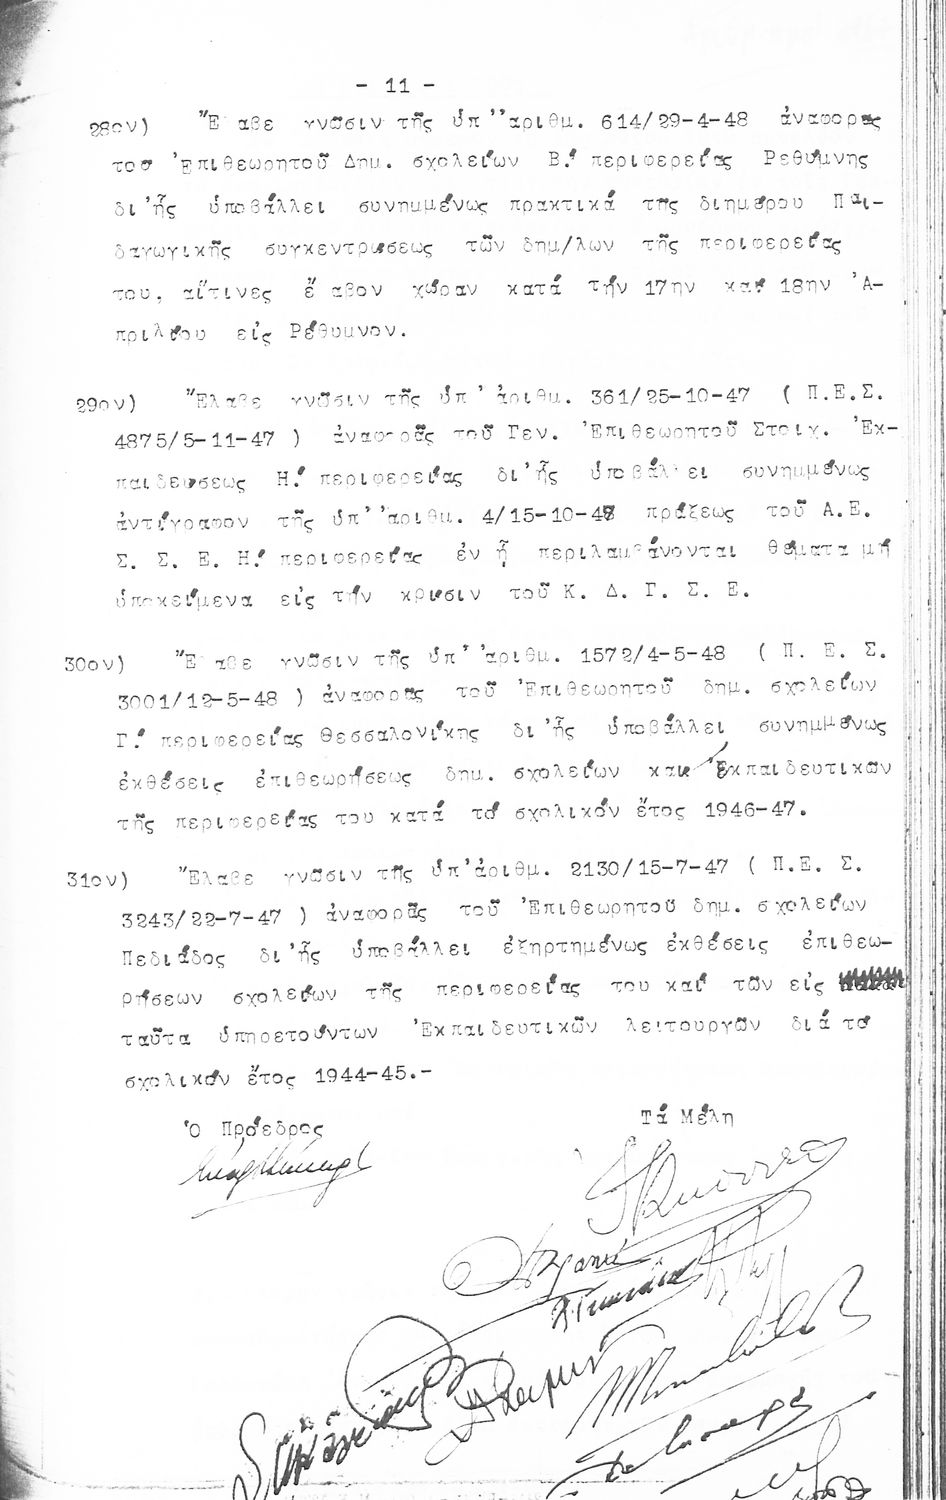 - 11 -
28ον) Ἔλαβε γνῶσιν τῆς ὑπ' ἀριθμ. 614/29-4-48 ἀναφορᾶς
τοῦ Ἐπιθεωρητοῦ Δημ. σχολείων Β.΄ περιφερείας Ρεθύμνης
δι'ἧς ὑποβάλλει συνημμένως πρακτικά τῆς διημέρου Παι-
δαγωγικῆς συγκεντρώσεως τῶν δημ/λων τῆς περιφερείας
του, αἵτινες ἔλαβον χώραν κατά τήν 17ην καί 18ην Ἀ-
πριλίου εἰς Ρέθυμνον.
29ον) Ἔλαβε γνῶσιν τῆς ὑπ' ἀριθμ. 361/25-10-47 ( Π.Ε.Σ.
4875/5-11-47 ) ἀναφορᾶς τοῦ Γεν. Ἐπιθεωρητοῦ Στοιχ. Ἐκ-
παιδεύσεως Η.΄ περιφερείας δι'ἧς ὑποβάλλει συνημμένως
ἀντίγραφον τῆς ὑπ' ἀριθμ. 4/15-10-47 πράξεως τοῦ Α.Ε.
Σ. Σ. Ε. Η.΄ περιφερείας ἐν ᾗ περιλαμβάνονται θέματα μή
ὑποκείμενα εἰς τήν κρίσιν τοῦ Κ. Δ. Γ. Σ. Ε.
30ον) Ἔλαβε γνῶσιν τῆς ὑπ' ἀριθμ. 1572/4-5-48 ( Π. Ε. Σ.
3001/12-5-48 ) ἀναφορᾶς τοῦ Ἐπιθεωρητοῦ δημ. σχολείων
Γ.΄ περιφερείας Θεσσαλονίκης δι'ἧς ὑποβάλλει συνημμένως
ἐκθέσεις ἐπιθεωρήσεως δημ. σχολείων καί Ἐκπαιδευτικῶν
τῆς περιφερείας του κατά τό σχολικόν ἔτος 1946-47.
31ον) Ἔλαβε γνῶσιν τῆς ὑπ'ἀριθμ. 2130/15-7-47 ( Π.Ε. Σ.
3243/22-7-47 ) ἀναφορᾶς τοῦ Ἐπιθεωρητοῦ δημ. σχολείων
Πεδιάδος δι'ἧς ὑποβάλλει ἐξηρτημένως ἐκθέσεις ἐπιθεω-
ρήσεων σχολείων τῆς περιφερείας του καί τῶν εἰς
ταῦτα ὑπηρετούντων Ἐκπαιδευτικῶν λειτουργῶν διά τό
σχολικόν ἔτος 1944-45.-
Ὁ Πρόεδρος
Τά Μέλη